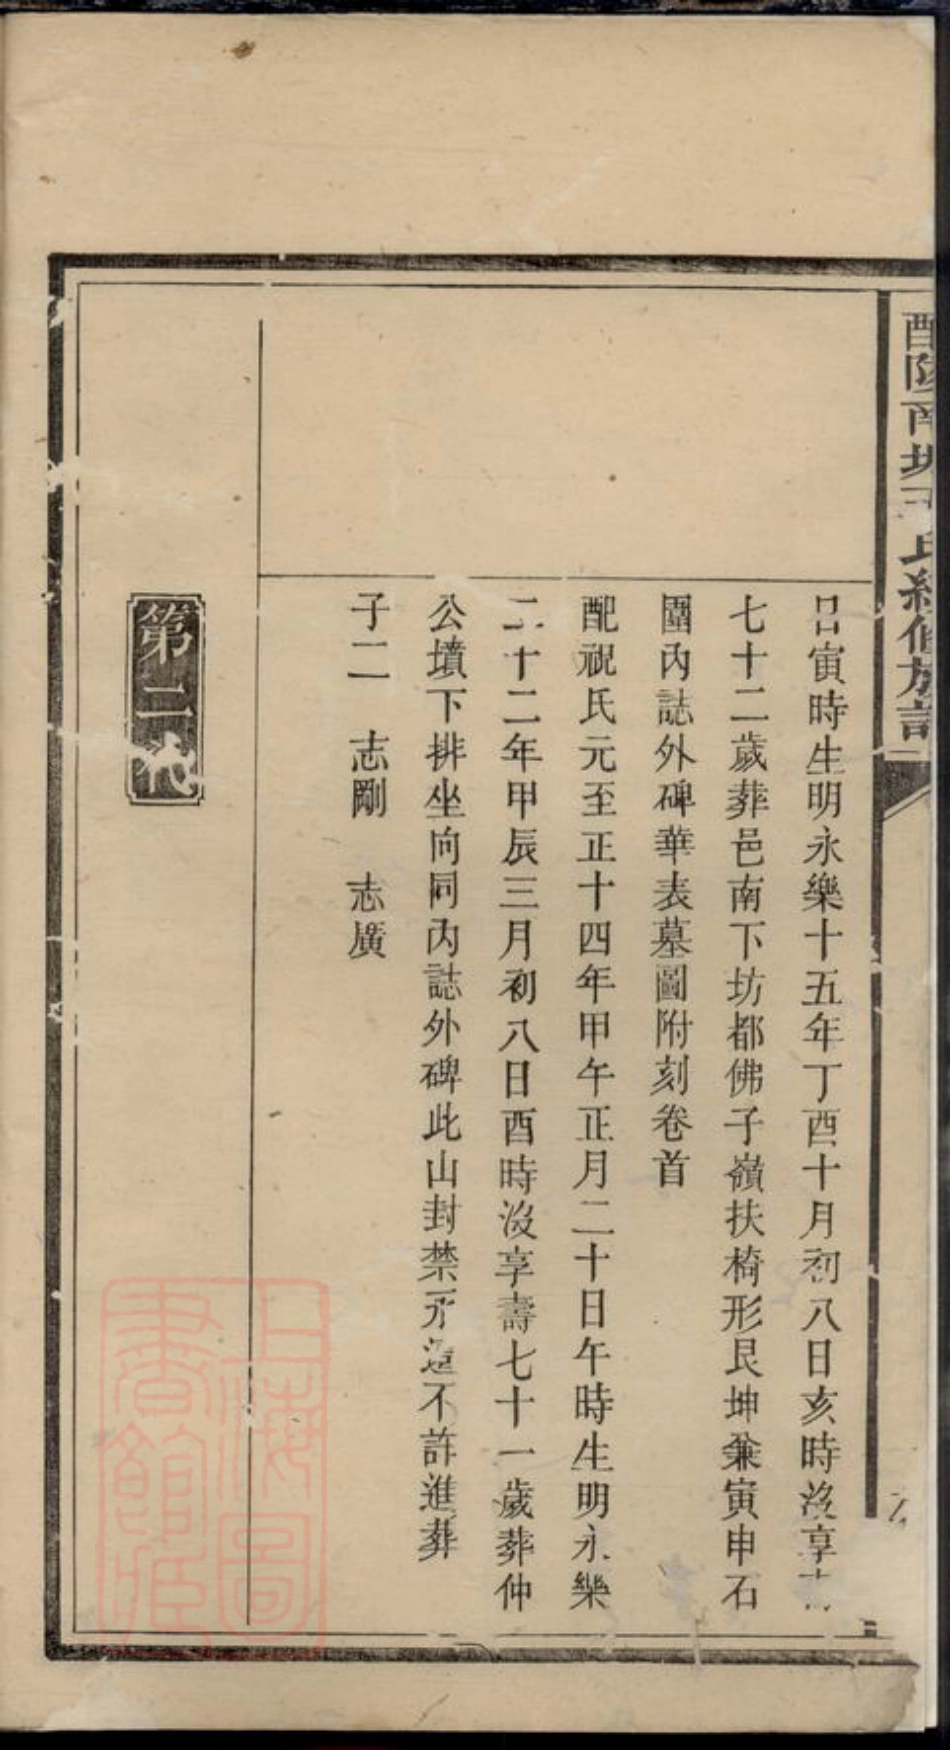 醴陵南城王氏續修族譜
日寅時生明永樂十五年丁酉十月初八日亥時沒享
七十二歲葬邑南下坊都佛子嶺扶椅形艮坤兼寅申石
圍內誌外碑華表墓圖附刻卷首
配祝氏元至正十四年甲午正月二十日午時生明永樂
二十二年甲辰三月初八日酉時沒享壽七十一歲葬仲
公墳下排坐向同內誌外碑此山封禁永遠不許進葬
子二　志剛　志廣
第二代
上海圖
書館藏